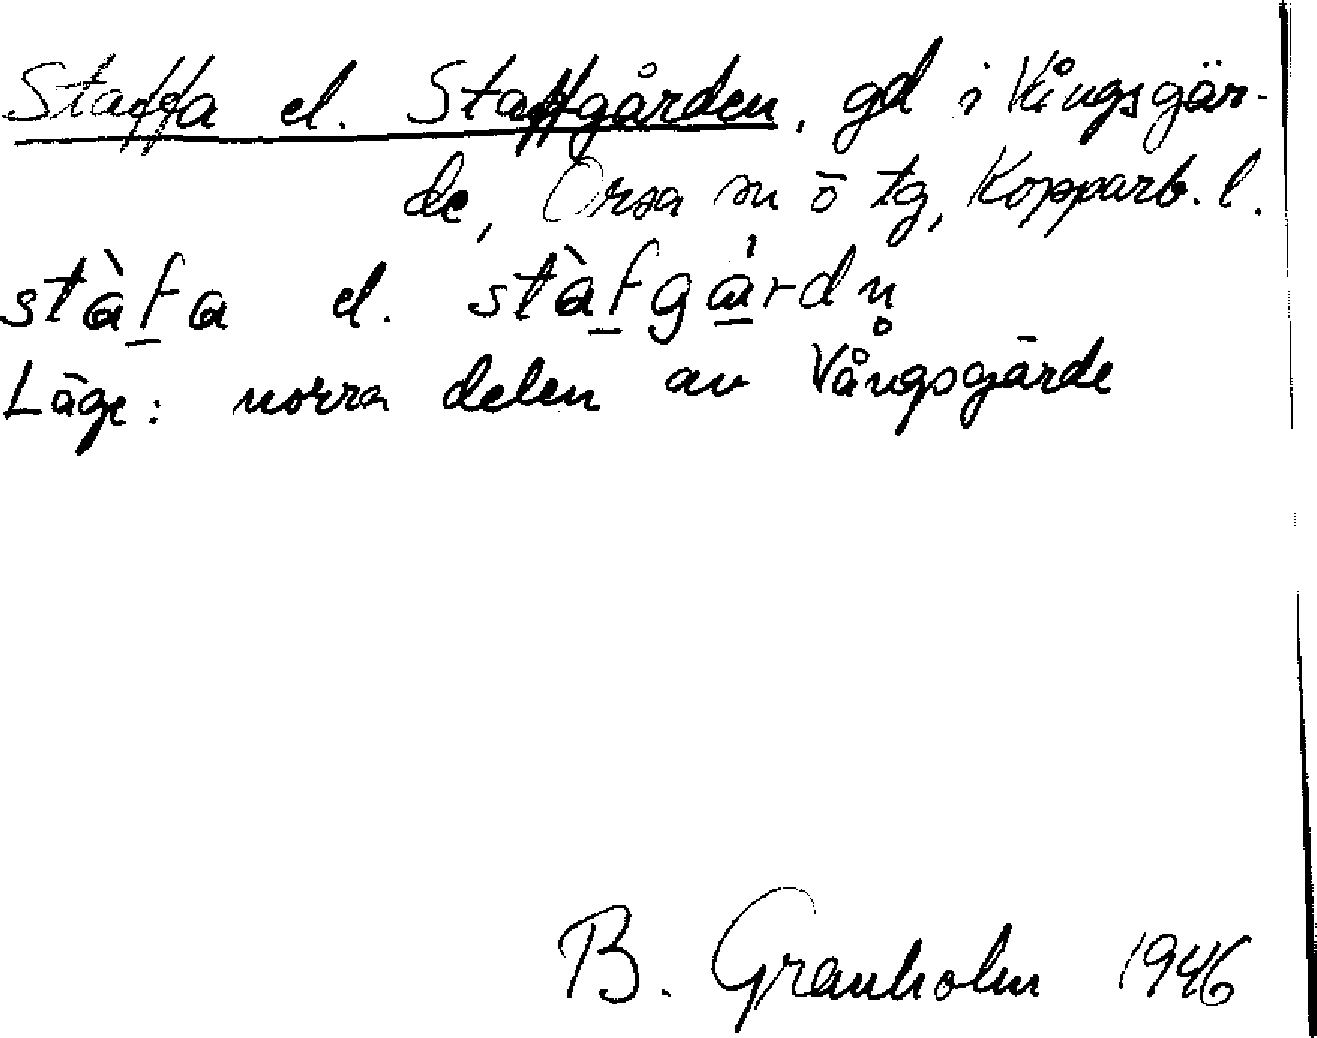 Staffa el. Staffgården, gd i Vångsgär-
de, Orsa sn ö tg, Kopparb. l.
stàfa el. stàfgárdn̥
Läge: norra delen av Vångsgärde
B. Granholm 1946